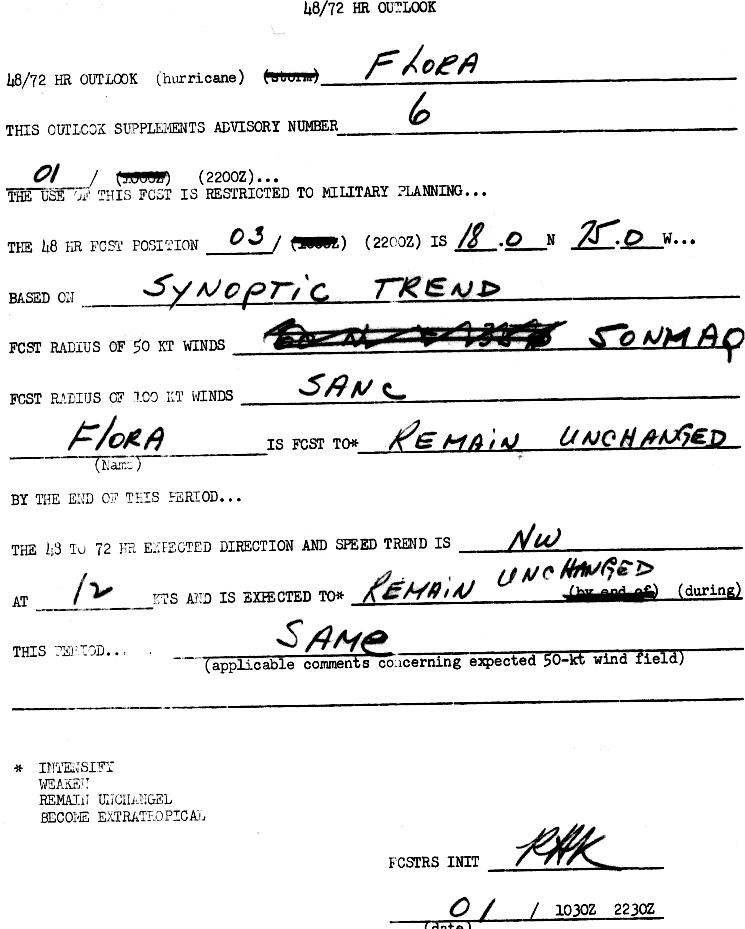 48/72 HR OUTLOOK
48/72 HR OUTLOOK (hurricane) (storm) FLORA
THIS OUTLOOK SUPPLEMENTS ADVISORY NUMBER 6
01 / (1000Z) (2200Z)...
THE USE OF THIS FCST IS RESTRICTED TO MILITARY PLANNING...
THE 48 HR FCST POSITION 03 / (1000Z) (2200Z) IS 18.0 N 75.0 W...
BASED ON SYNOPTIC TREND
FCST RADIUS OF 50 KT WINDS 50NMAQ
FCST RADIUS OF 100 KT WINDS SANC
FLORA IS FCST TO* REMAIN UNCHANGED
(Name)
BY THE END OF THIS PERIOD...
THE 48 TO 72 HR EXPECTED DIRECTION AND SPEED TREND IS NW
AT 12 KTS AND IS EXPECTED TO* REMAIN UNCHANGED (by end of) (during)
THIS PERIOD... SAME
(applicable comments concerning expected 50-kt wind field)
* INTENSIFY
WEAKEN
REMAIN UNCHANGEL
BECOME EXTRATROPICAL
FCSTRS INIT RHK
01 / 1030Z 2230Z
(date)